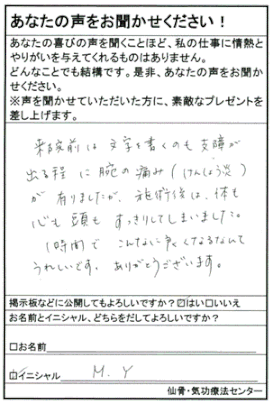 あなたの声をお聞かせください！
あなたの喜びの声を聞くことほど、私の仕事に情熱と
やりがいを与えてくれるものはありません。
どんなことでも結構です。是非、あなたの声をお聞か
せください。
※声を聞かせていただいた方に、素敵なプレゼントを
差し上げます。
来院前は文字を書くのも支障が
出る程に腕の痛み(けんしょう炎)
が有りましたが、施術後は、体も
心も頭もすっきりしてしまいました。
1時間でこんなに良くなるなんて
うれしいです。ありがとうございます。
掲示板などに公開してもよろしいですか？☑はい□いいえ
お名前とイニシャル、どちらをだしてよろしいですか？
□お名前
☑イニシャル M.Y
仙骨・気功療法センター